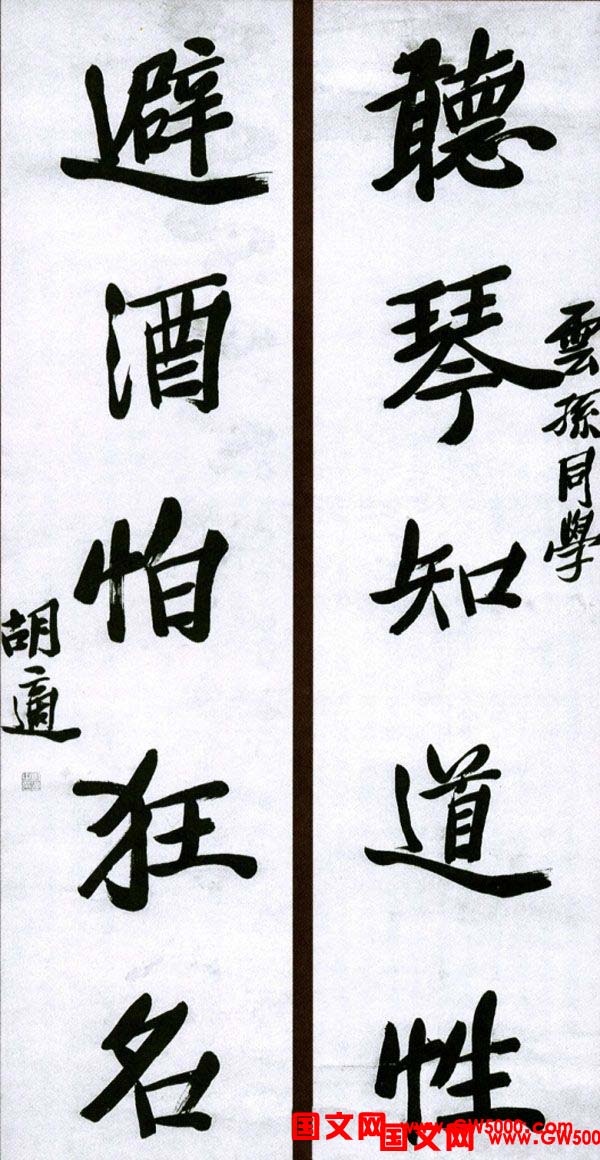 雲孫同學
聽琴知道性
避酒怕狂名
胡適
国文网 www.GW5000.com
国文网 www.GW5000.com